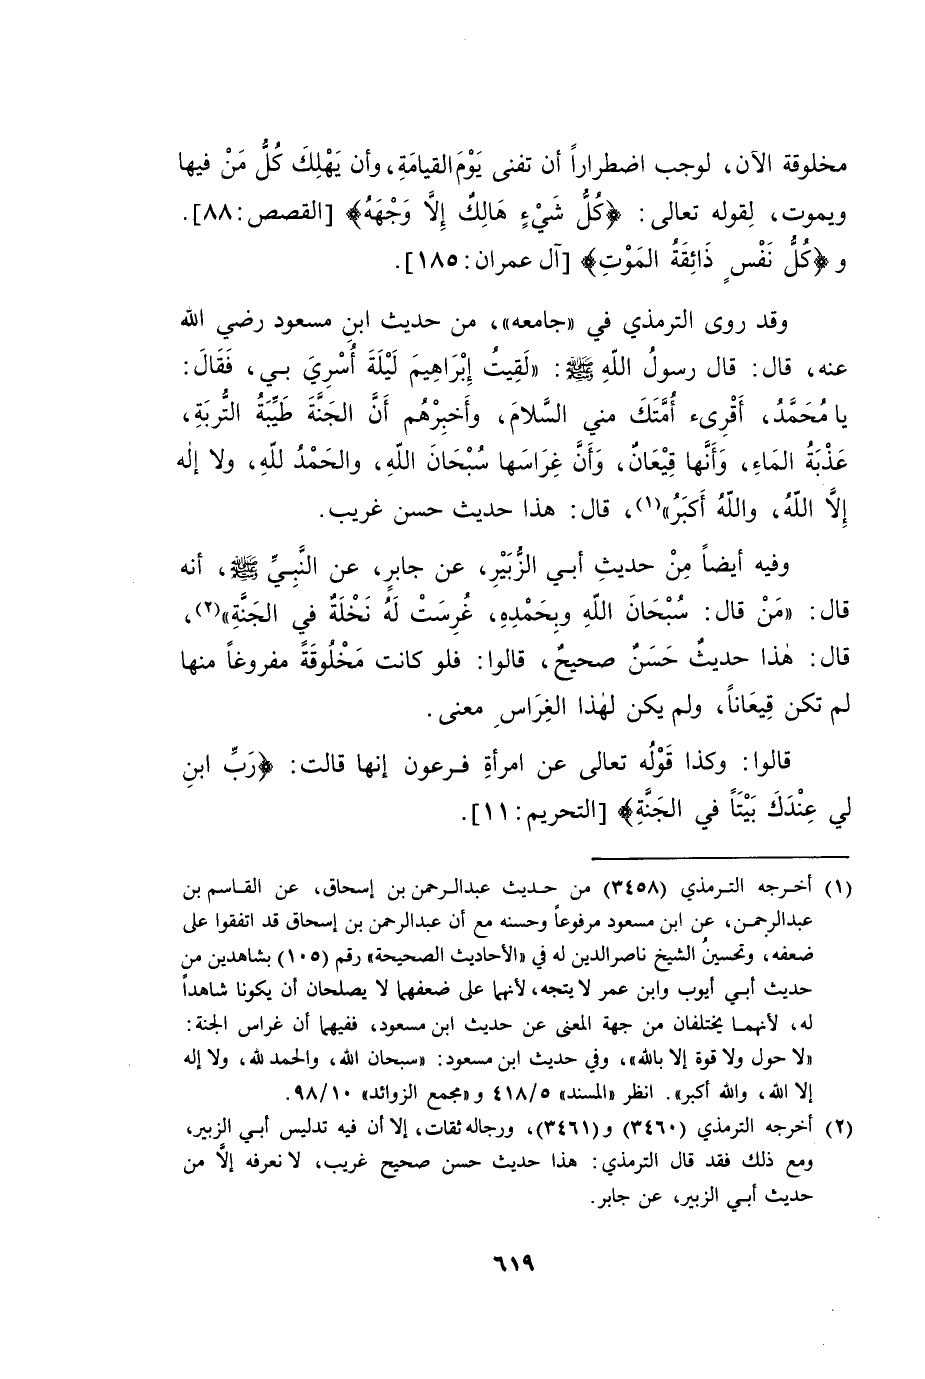 مخلوقة الآن، لوجب اضطراراً أن تفنى يَوْمَ القيامَةِ، وأن يَهْلِكَ كُلُّ مَنْ فيها
ويموت، لِقوله تعالى: ﴿كُلُّ شَيْءٍ هَالِكٌ إِلَّا وَجْهَهُ﴾ [القصص: ٨٨].
و ﴿كُلُّ نَفْسٍ ذَائِقَةُ المَوْتِ﴾ [آل عمران: ١٨٥].
وقد روى الترمذي في «جامعه»، من حديث ابنِ مسعود رضي الله
عنه، قال: قال رسولُ اللّهِ ﷺ: «لَقِيتُ إِبْرَاهِيمَ لَيْلَةَ أُسْرِيَ بي، فَقَالَ:
يا مُحَمَّدُ، أَقْرِىء أُمَّتَكَ مني السَّلامَ، وأَخبِرْهُم أَنَّ الجَنَّةَ طَيِّبَةُ التُّربَةِ،
عَذْبَةُ المَاءِ، وَأَنَّها قِيْعَانٌ، وَأَنَّ غِرَاسَها سُبْحَانَ اللّهِ، والحَمْدُ للّهِ، ولا إله
إِلَّا اللّهُ، واللّهُ أَكبَرُ»(١)، قال: هذا حديث حسن غريب.
وفيه أيضاً مِنْ حديثِ أبي الزُّبَيْرِ، عن جابرٍ، عن النَّبِيِّ ﷺ، أنه
قال: «مَنْ قال: سُبْحَانَ اللّهِ وبِحَمْدِهِ، غُرِسَتْ لَهُ نَخْلَةٌ في الجَنَّةِ»(٢)،
قال: هٰذا حديثٌ حَسَنٌ صحيحٌ، قالوا: فلو كانت مَخْلُوقَةً مفروغاً منها
لم تكن قِيعَاناً، ولم يكن لهٰذا الغِرَاسِ معنى.
قالوا: وكذا قَوْلُه تعالى عن امرأةِ فرعون إنها قالت: ﴿رَبِّ ابنِ
لي عِنْدَكَ بَيْتَاً في الجَنَّةِ﴾ [التحريم: ١١].
(١) أخرجه الترمذي (٣٤٥٨) من حديث عبدالرحمن بن إسحاق، عن القاسم بن
عبدالرحمن، عن ابن مسعود مرفوعاً وحسنه مع أن عبدالرحمن بن إسحاق قد اتفقوا على
ضعفه، وتحسينُ الشيخ ناصر الدين له في «الأحاديث الصحيحة» رقم (١٠٥) بشاهدين من
حديث أبي أيوب وابن عمر لا يتجه، لأنهما على ضعفهما لا يصلحان أن يكونا شاهداً
له، لأنهما يختلفان من جهة المعنى عن حديث ابن مسعود، ففيهما أن غراس الجنة:
«لا حول ولا قوة إلا بالله»، وفي حديث ابن مسعود: «سبحان الله، والحمد لله، ولا إله
إلا الله، والله أكبر». انظر «المسند» ٤١٨/٥ و«مجمع الزوائد» ٩٨/١٠.
(٢) أخرجه الترمذي (٣٤٦٠) و(٣٤٦١)، ورجاله ثقات، إلا أن فيه تدليس أبي الزبير،
ومع ذلك فقد قال الترمذي: هذا حديث حسن صحيح غريب، لا نعرفه إلَّا من
حديث أبي الزبير، عن جابر.
٦١٩